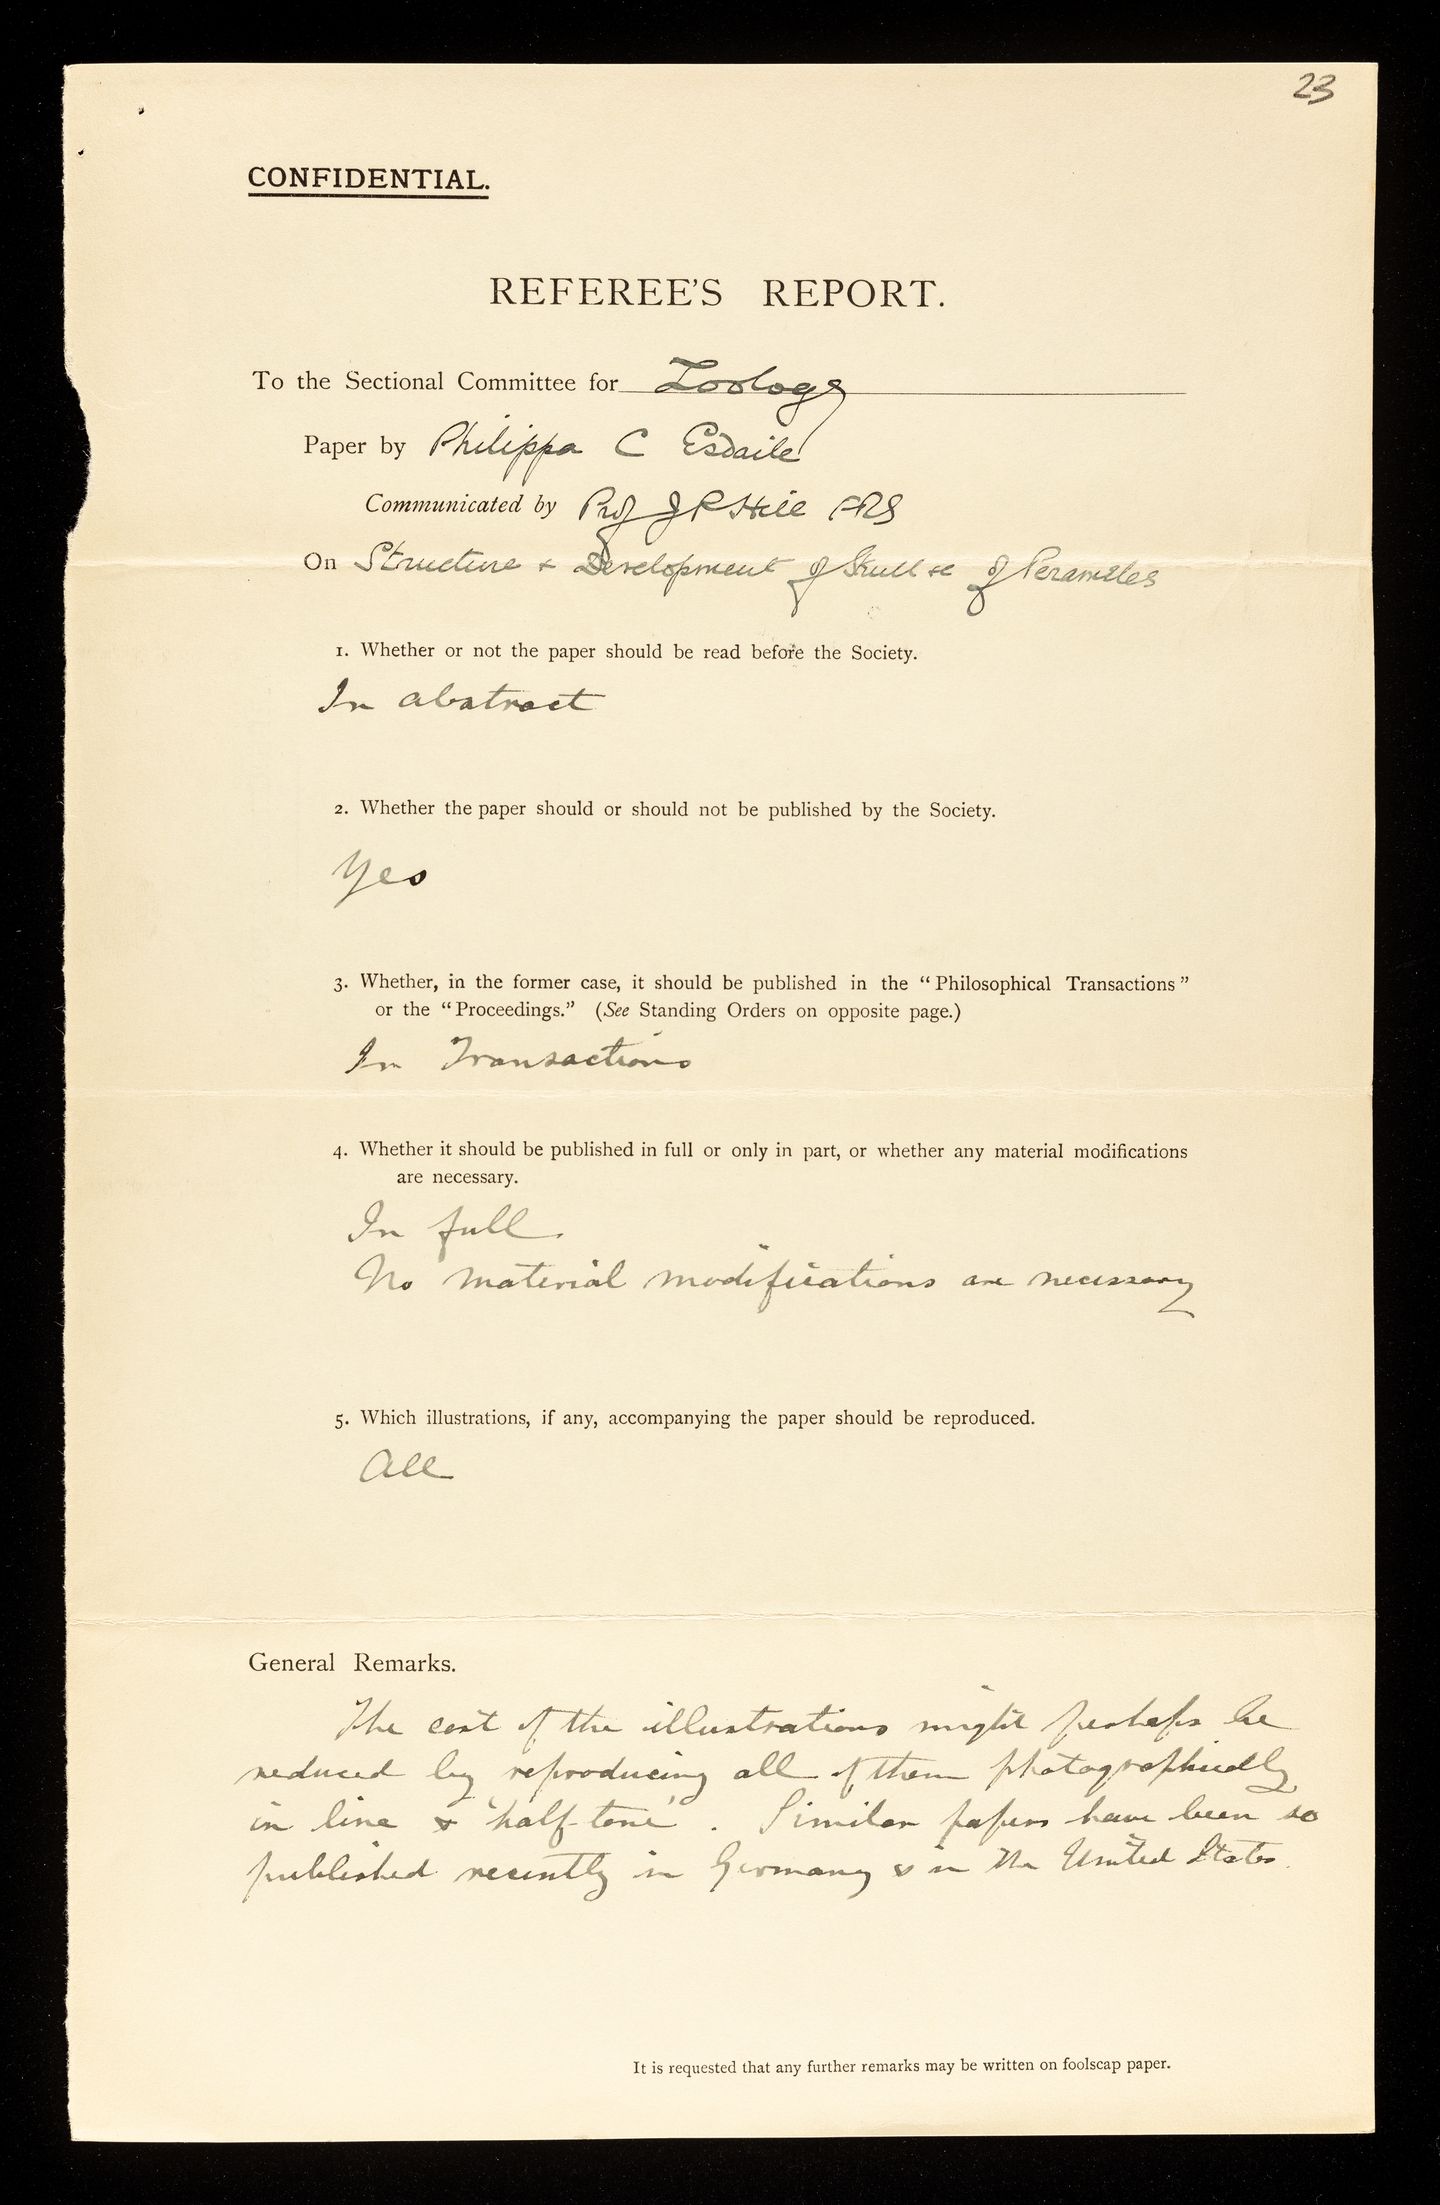 23
CONFIDENTIAL.
REFEREE'S REPORT.
To the Sectional Committee for Zoology
Paper by Philippa C Esdaile
Communicated by Prof J P Hill FRS
On Structure & Development of Skull &c of Perameles
1. Whether or not the paper should be read before the Society.
In abstract
2. Whether the paper should or should not be published by the Society.
Yes
3. Whether, in the former case, it should be published in the "Philosophical Transactions"
or the "Proceedings." (See Standing Orders on opposite page.)
In Transactions
4. Whether it should be published in full or only in part, or whether any material modifications
are necessary.
In full.
No material modifications are necessary
5. Which illustrations, if any, accompanying the paper should be reproduced.
All
General Remarks.
The cost of the illustrations might perhaps be
reduced by reproducing all of them photographically
in line & 'half-tone'. Similar papers have been so
published recently in Germany & in the United States.
It is requested that any further remarks may be written on foolscap paper.